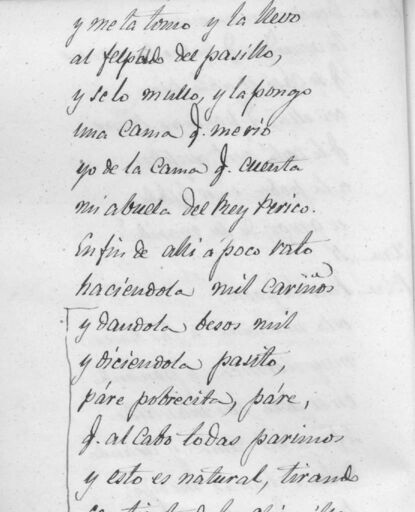 y me la tomo y la llevo
al felpudo del pasillo,
y se lo mullo, y la pongo
una cama q. me rio
yo de la cama q. cuenta
mi abuela del Rey Perico.
En fin de alli á poco rato
haciendola mil cariños
y dandola besos mil
y diciendola pasito,
páre pobrecita, páre,
q. al cabo todas parimos
y esto es natural, tirando